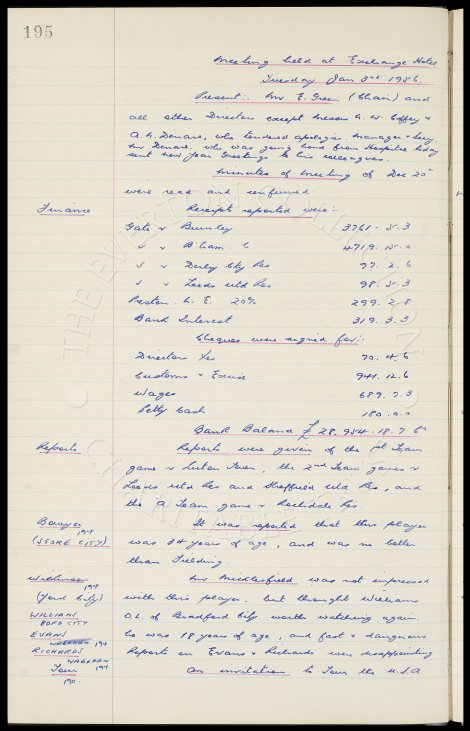 195
Meeting held at Exchange Hotel
Tuesday Jan 3rd 1956.
Present:- Mr E. Green (Chair) and
all other Directors except Messrs
A. H. Denaro, who tendered apologies. Manager & Secy.
Mr Denaro, who was going home from Hospital today
sent New Year Greetings to his colleagues.
Minutes of Meeting of Dec 20th
were read and confirmed.
Finance
Receipts reported were:-
Gate v Burnley 3761-5.3
v v B'ham. C 4719.15.0
v v Derby Cty Res 97.2.6
v v Leeds Utd Res 98.5.3
Preston N. E. 20% 299.2.8
Bank Interest 319.3.3
Cheques were signed for:-
Directors Xes 70.4.6
Customs & Excise 941.12.6
Wages 689.7.3
Petty Cash 180.0.0
Bank Balance £28,954.18.7
Reports
Reports were given of the 1st Team
game v Luton Town, the 2nd Team games v
Leeds Utd Res and Sheffield Utd Res, and
the A Team game v Rochdale Res.
Bowyer
194
(STOKE CITY)
It was reported that this player
was 34 years of age, and was no better
than Fielding.
Wilkinson
194
(Ford City)
Mr Micklesfield was not impressed
with this player, but thought Williams
WILLIAMS
BDFD CITY
O.L. of Bradford City worth watching again.
EVANS
WREXHAM 194
he was 18 years of age, and fast & dangerous
RICHARDS
WREXHAM 194
Reports on Evans & Richards were disappointing
Tour
190.
An invitation to Tour the U.S.A
THE EVERTON COLLECTION
CHARITABLE